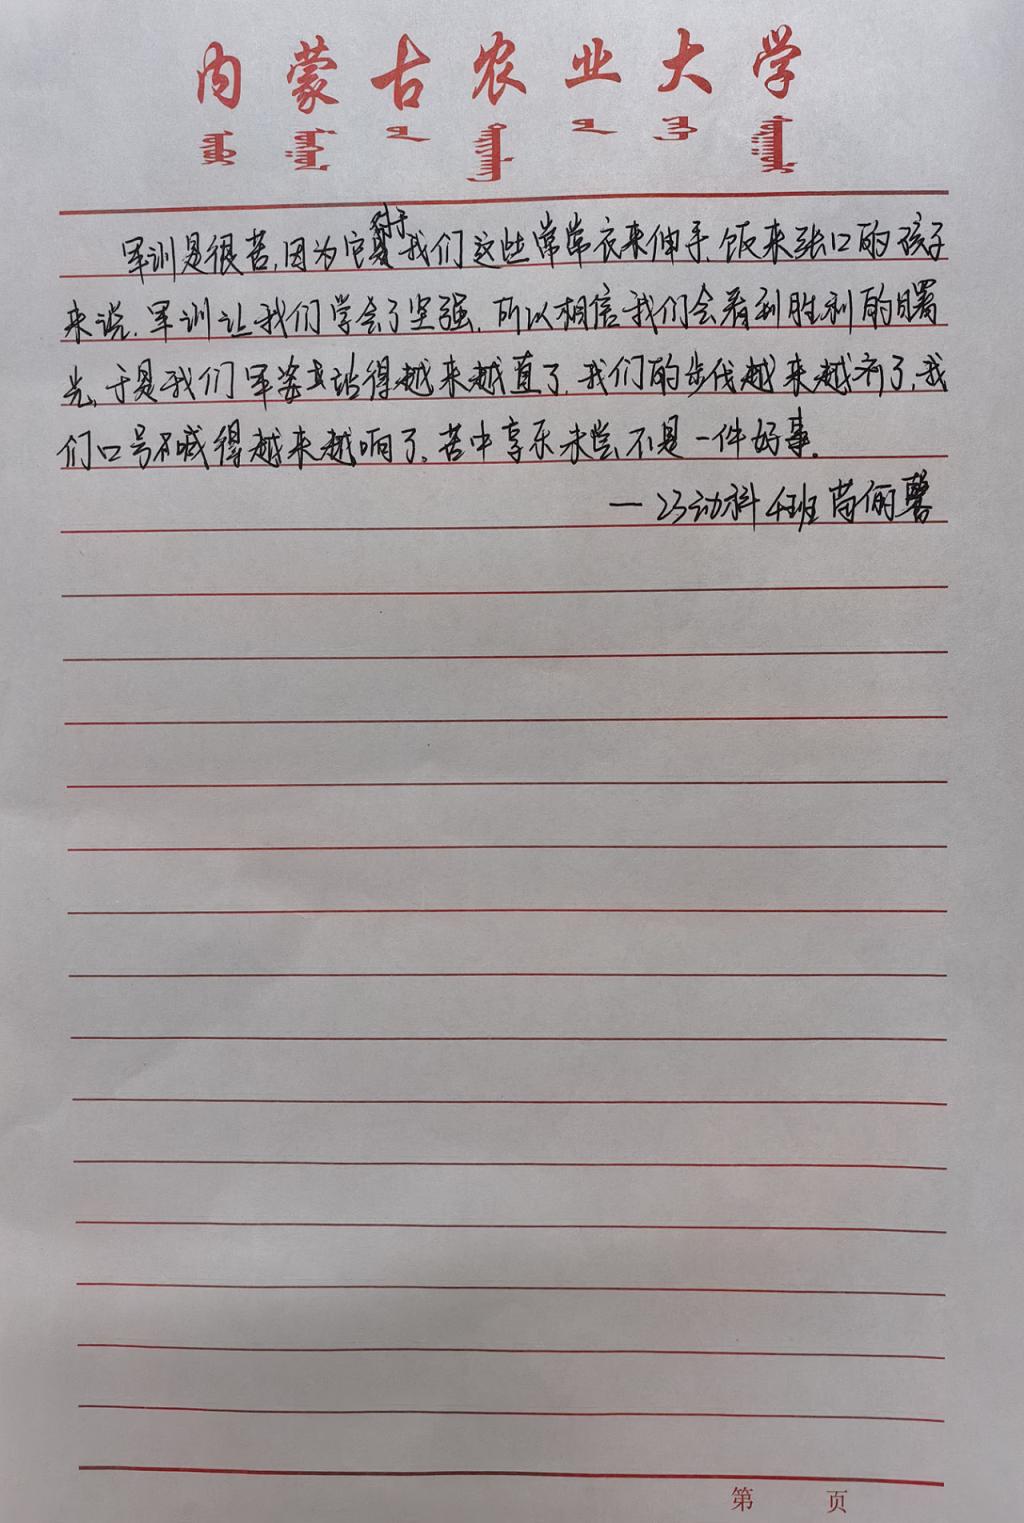 内蒙古农业大学
军训是很苦,因为它是对于我们这些常常衣来伸手、饭来张口的孩子
来说.军训让我们学会了坚强.所以相信我们会看到胜利的曙
光,于是我们军姿站得越来越直了.我们的步伐越来越齐了,我
们口号喊得越来越响了、苦中享乐未尝不是一件好事.
— 23动科 班 苗俪馨
第 页